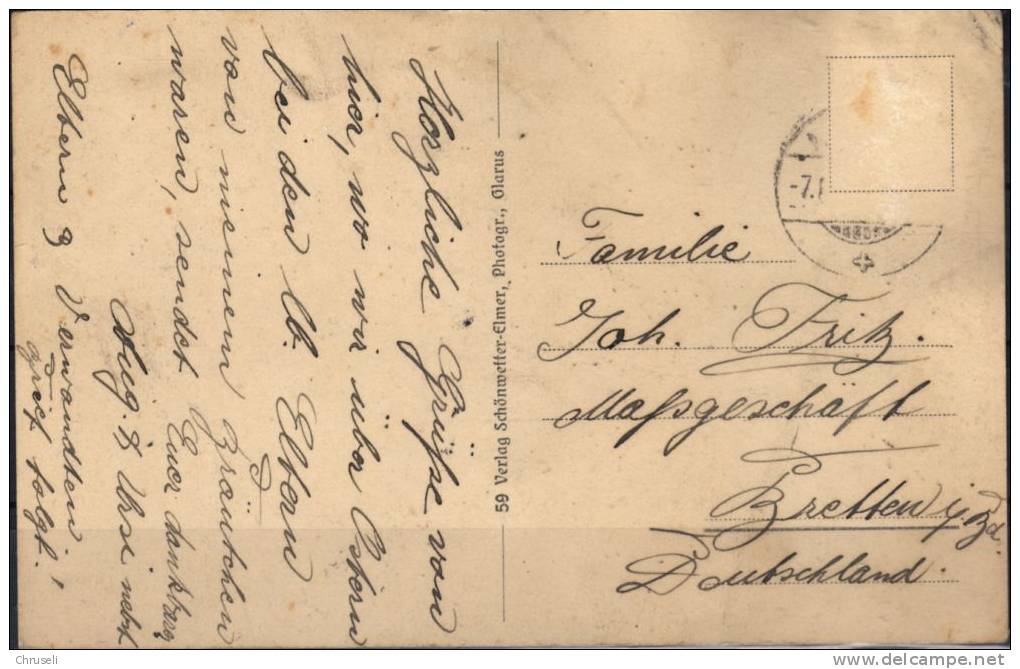 Herzliche Grüße von
hier, wo wir über Ostern
bei den lb. Eltern
von meinem Bräutchen
waren, sendet Euer dankbarer
Aug. & Ursi nebst
Eltern & Verwandten.
Brief folgt.!
59 Verlag Schönwetter-Elmer, Photogr., Glarus
-7.
Familie
Joh. Fritz
Maßgeschäft
Bretten i/Bd.
Deutschland.
Chruseli
delcampe.net